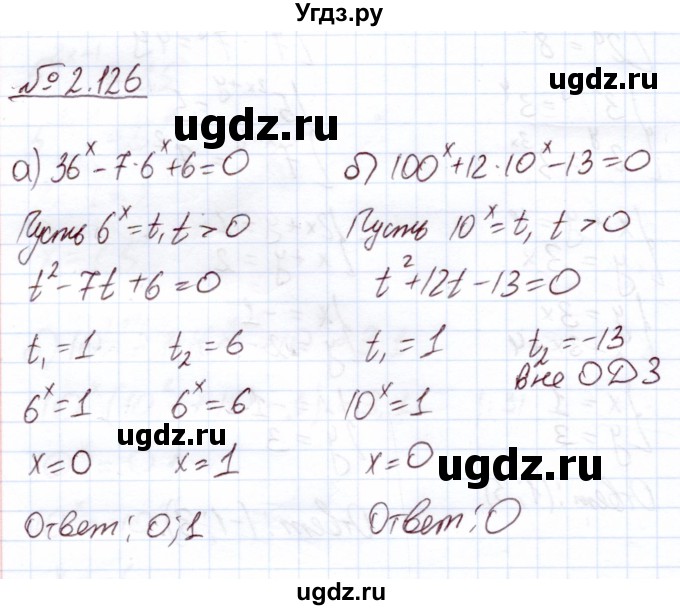 Угдз.ру
№ 2.126
ugdz.ru
ugdz.ru
а) 36^x - 7·6^x + 6 = 0
Пусть 6^x = t, t > 0
t² - 7t + 6 = 0
t₁ = 1 t₂ = 6
6^x = 1 6^x = 6
x = 0 x = 1
Ответ: 0; 1
б) 100^x + 12·10^x - 13 = 0
Пусть 10^x = t, t > 0
t² + 12t - 13 = 0
t₁ = 1 t₂ = -13
вне ОДЗ
10^x = 1
x = 0
Ответ: 0
ugdz.ru
ugdz.ru
ugdz.ru